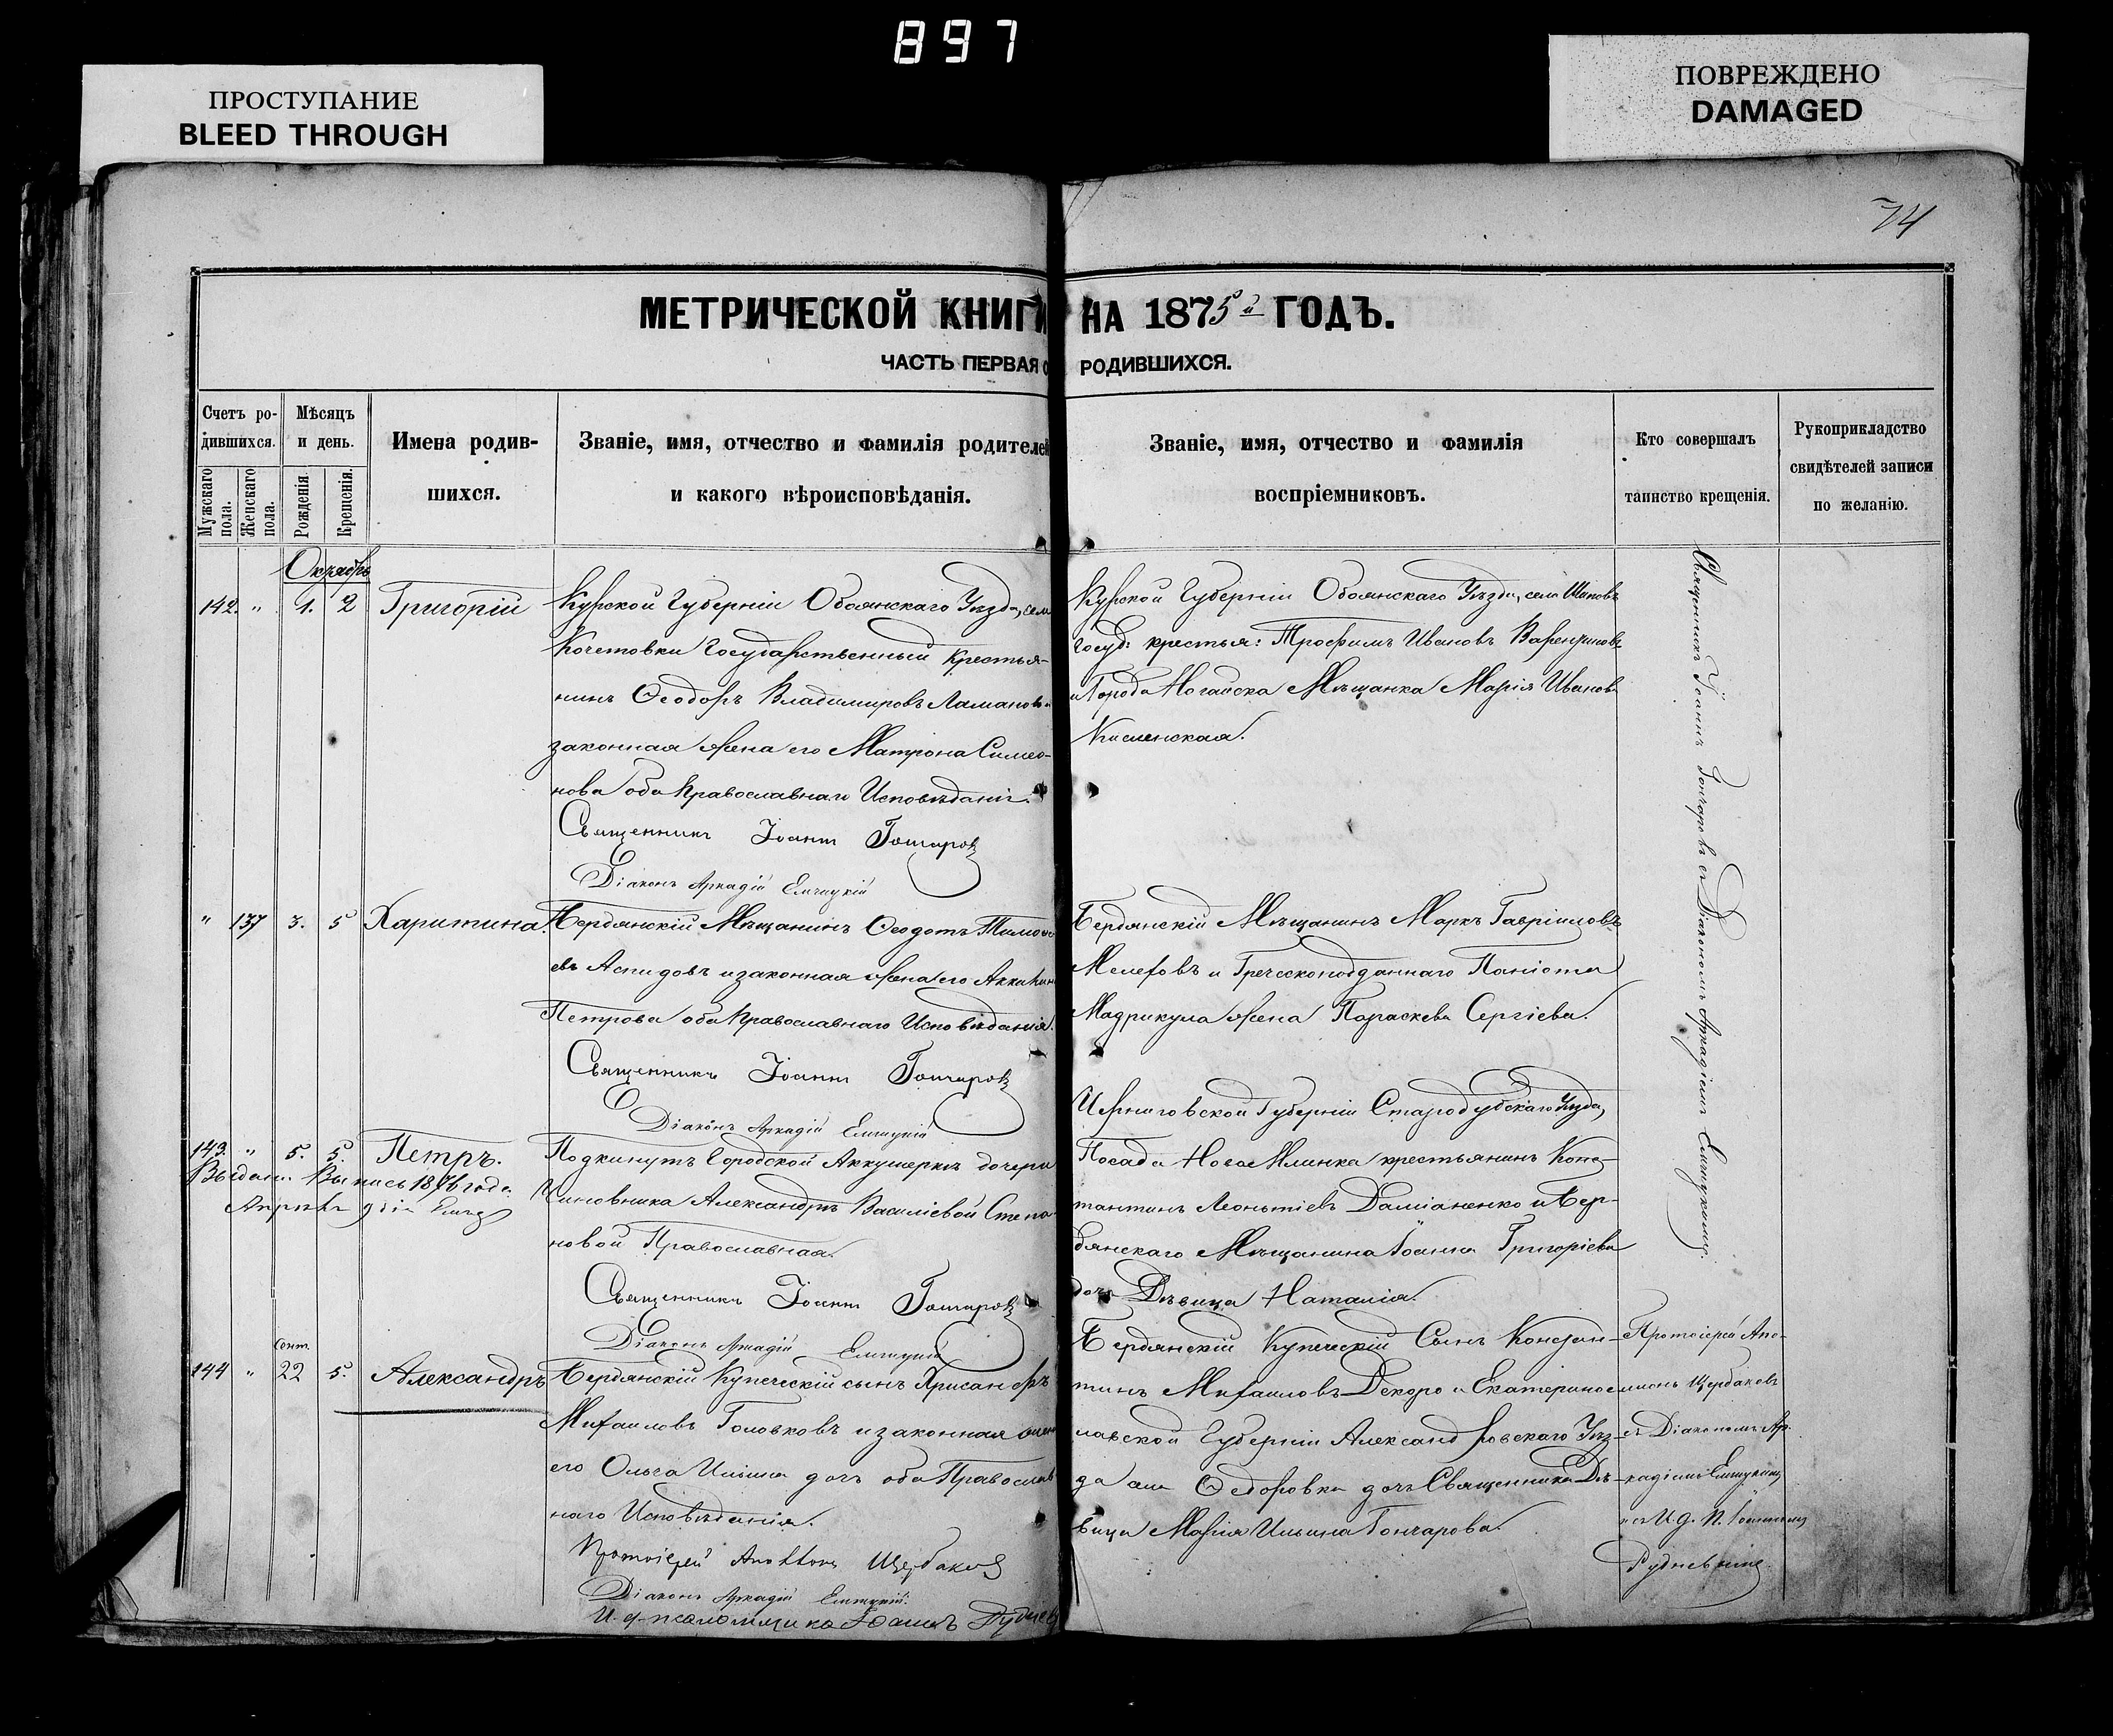 897
ПРОСТУПАНИЕ
BLEED THROUGH
ПОВРЕЖДЕНО
DAMAGED
74
МЕТРИЧЕСКОЙ КНИГИ НА 1875й ГОДЪ.
ЧАСТЬ ПЕРВАЯ О РОДИВШИХСЯ.
Счетъ ро-
дившихся.
Мужскаго пола.
Женскаго пола.
Мѣсяцъ
и день.
Рожденія.
Крещенія.
Имена родив-
шихся.
Званіе, имя, отчество и фамилія родителей
и какого вѣроисповѣданія.
Званіе, имя, отчество и фамилія
воспріемниковъ.
Кто совершалъ
таинство крещенія.
Рукоприкладство
свидѣтелей записи
по желанію.
Октябрь
142. " 1. 2 Григорій
Курской Губерніи Обоянскаго Уѣзда, села
Кочетовки Государственный Крестья-
нинъ Ѳеодоръ Владимировъ Ламановъ и
законная жена его Матрона Симео-
нова оба Православнаго Исповѣданія.
Священникъ Іоаннъ Гончаровъ
Діаконъ Аркадій
Курской Губерніи Обоянскаго Уѣзда, села
госуд: крестья: Трофимъ Ивановъ
и Города Ногайска Мѣщанка Марія Иванова
Кисленская.
Священникъ Іоаннъ Гончаровъ съ Діакономъ Аркадіемъ
" 137 3. 5 Харитина.
Бердянскій Мѣщанинъ Ѳеодотъ
евъ Аспидовъ и законная жена его
Петрова оба Православнаго Исповѣданія.
Священникъ Іоаннъ Гончаровъ
Діаконъ Аркадій
Бердянскій Мѣщанинъ Маркъ Гавріиловъ
и Греческоподданнаго Паніота
Мадрикула жена Параскева Сергіева.
143. " 5. 5. Петръ.
Выдана Выпись 1876 года
Подкинутъ Городской Аккушеркѣ дочери
Чиновника Александрѣ Василіевой Степа-
новой Православная.
Священникъ Іоаннъ Гончаровъ
Діаконъ Аркадій
Черниговской Губерніи Стародубскаго Уѣзда,
Посада Млинка крестьянинъ Конс-
тантинъ Леонтіевъ Даміаненко и Бер-
дянскаго Мѣщанина Іоанна Григоріева
дочь Дѣвица Наталія.
Сент.
144 " 22 5. Александръ
Бердянскій Купеческій сынъ Хрисанфъ
Михаиловъ Головковъ и законная жена
его Ольга Ильина дочь оба Православ-
наго Исповѣданія.
Протоіерей Щербаковъ
Діаконъ Аркадій
И. д. псаломщика Іоаннъ Рудневъ
Бердянскій Купеческій Сынъ Констан-
тинъ Михаиловъ Декоро и Екатерино-
славской Губерніи Александровскаго Уѣз-
да Ѳедоровка дочь Священника Дѣ-
вица Марія Ильина Гончарова.
Протоіерей Апо-
Щербаковъ
съ Діакономъ Ар-
кадіемъ
и съ И. д. П. Іоанномъ
Рудневымъ.